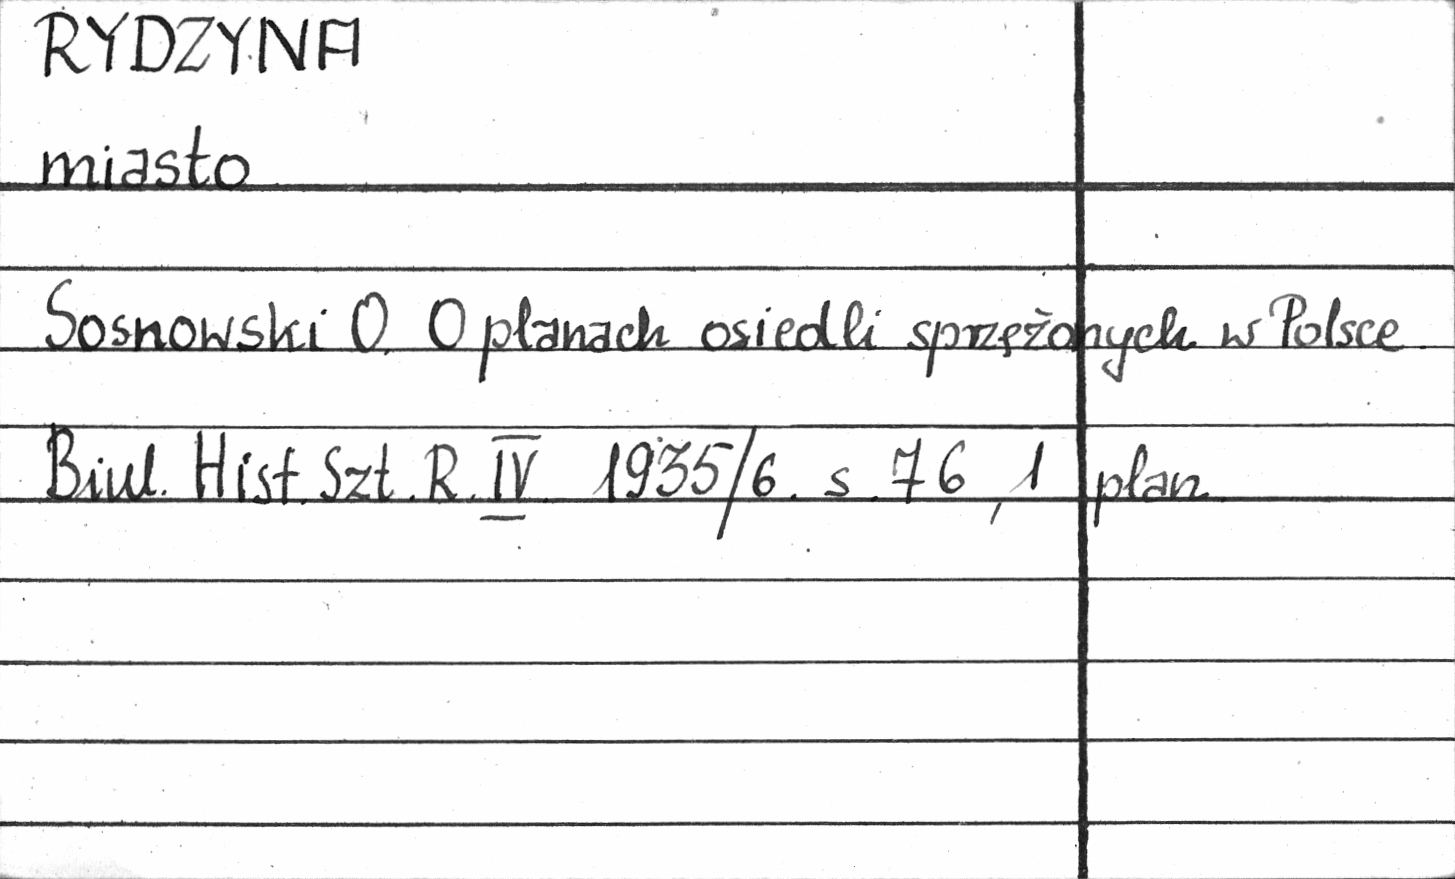 RYDZYNA
miasto
Sosnowski O. O planach osiedli sprzężonych w Polsce.
Biul. Hist. Szt. R. IV 1935/6. s. 76, 1 plan.